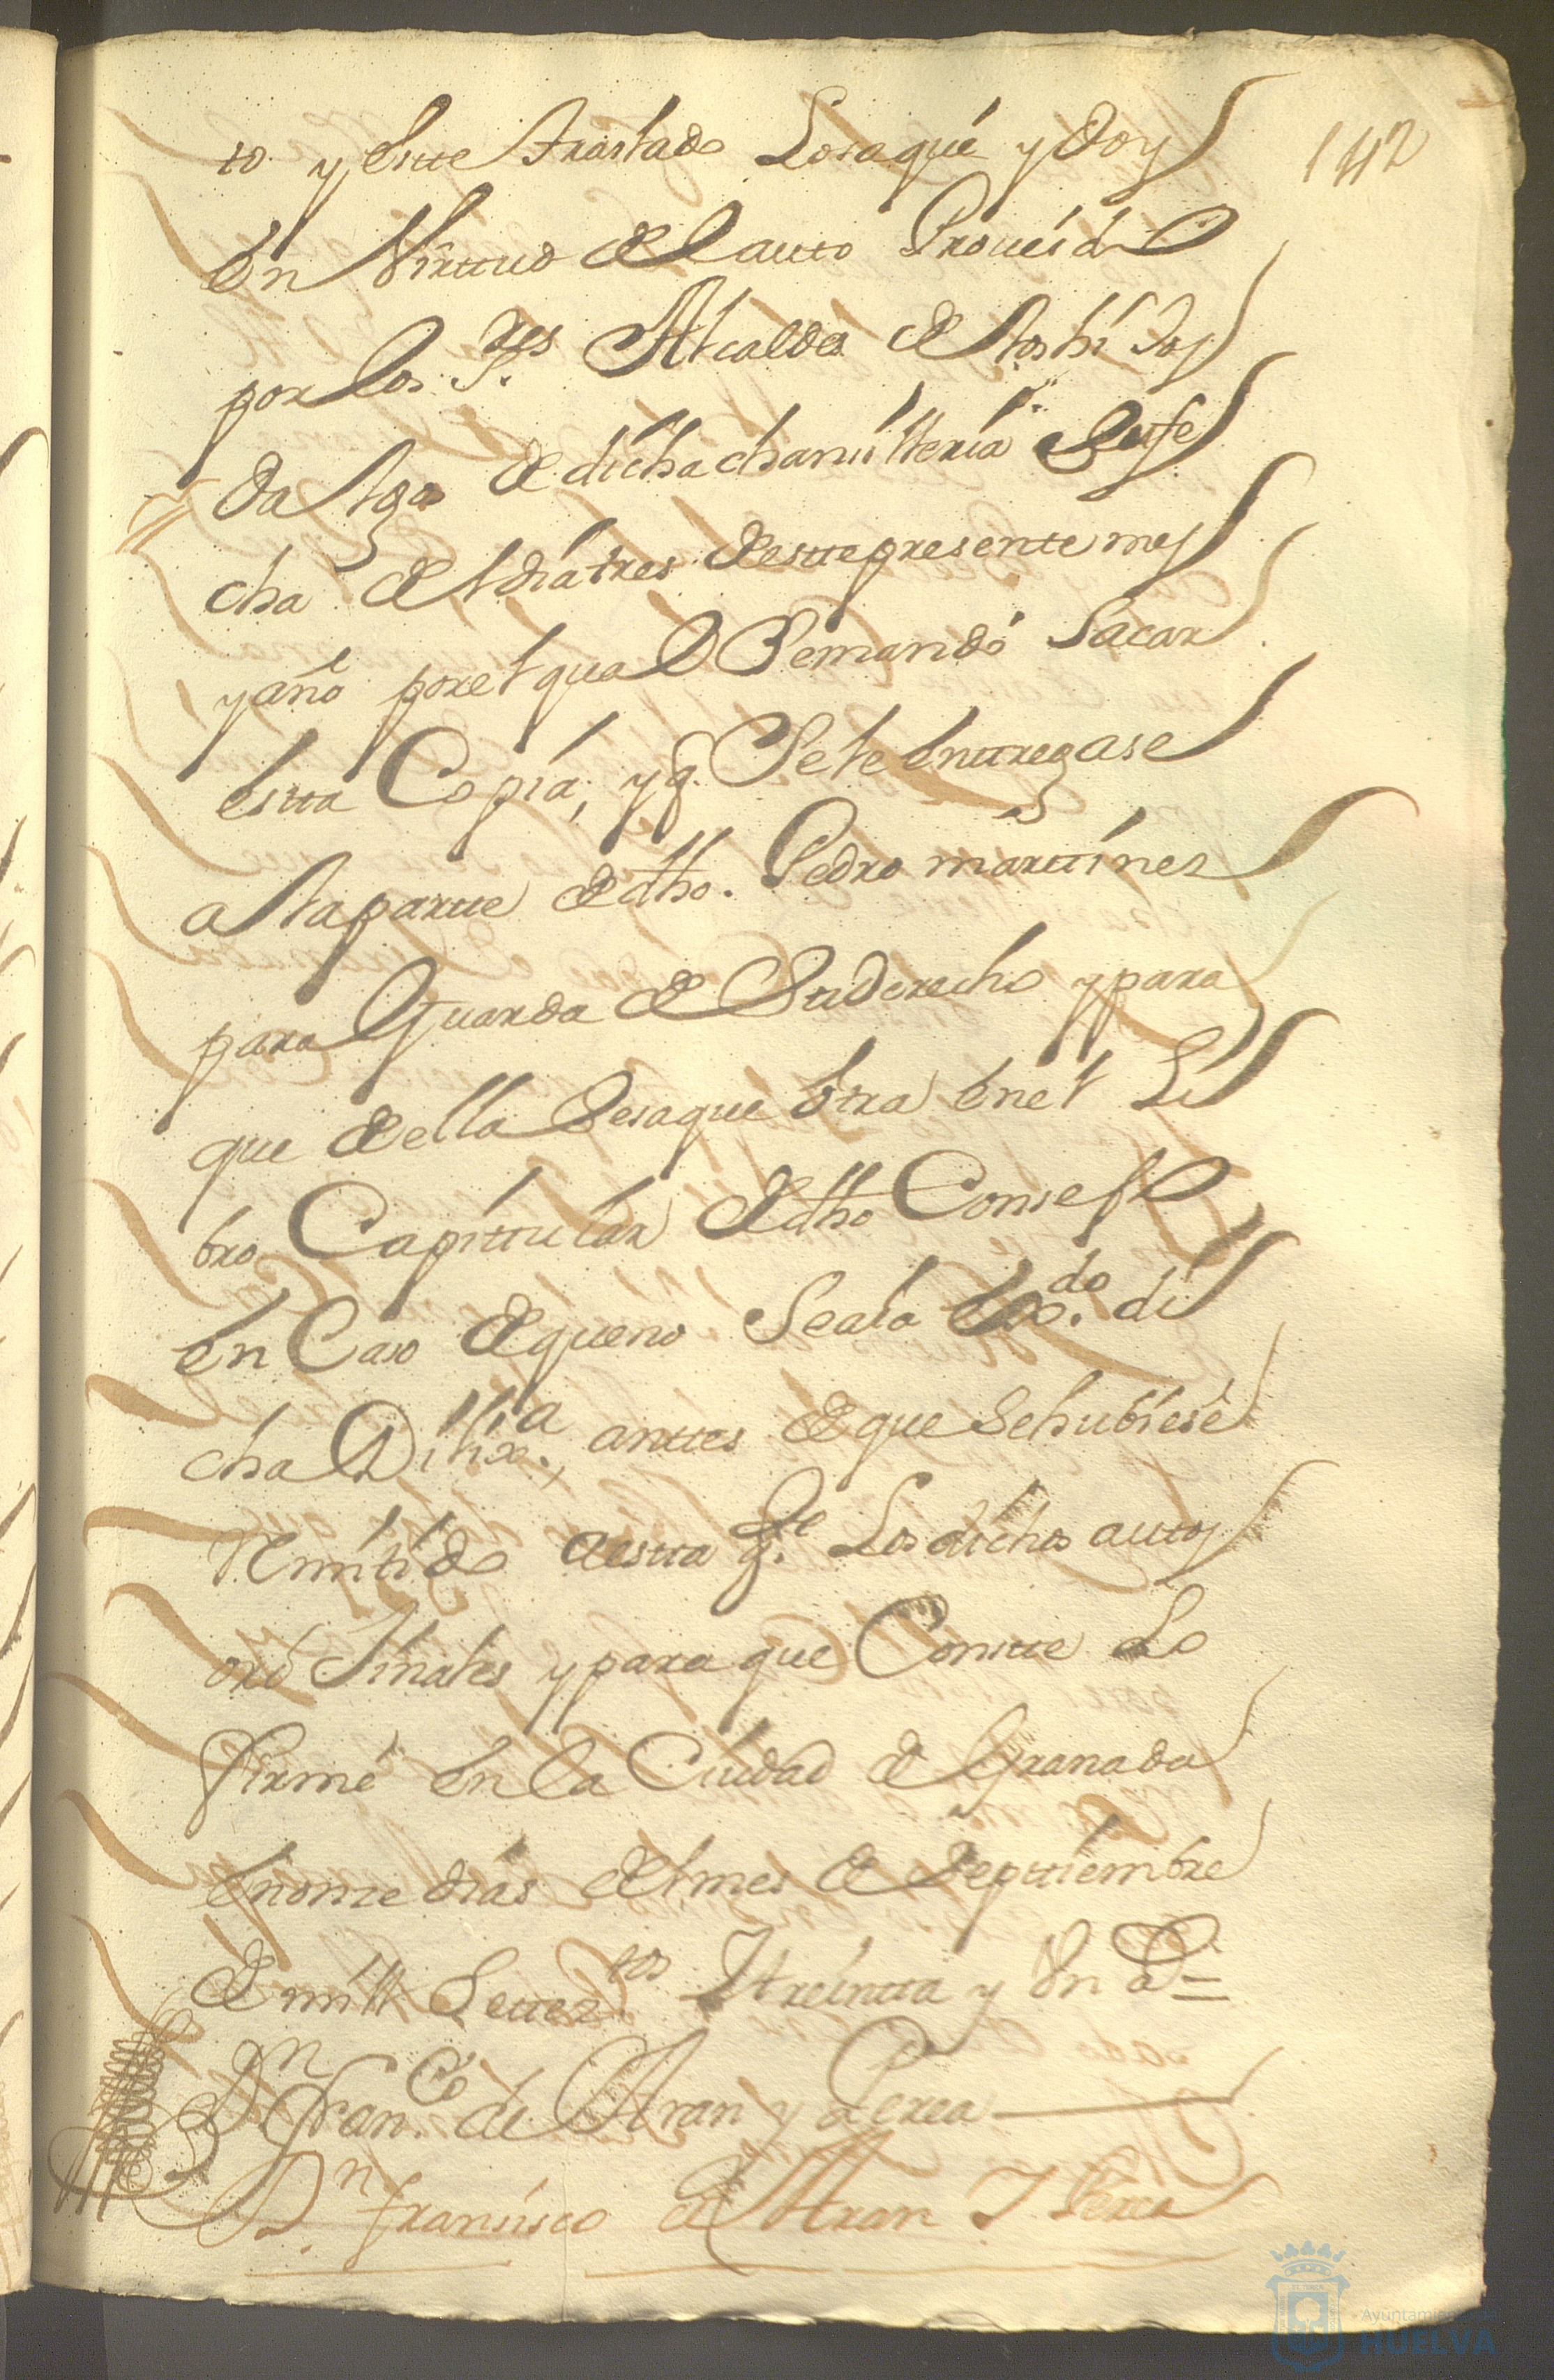 142
to y este traslado Lo saqué y doy
en Virttud del autto Proueido
por los S.res Alcaldes de los hijos
dalgo de dicha chanzilleria Su fe
cha del dia tres de este presente mes
y año por el qual Se mandó Sacar
estta Copia, y q. Se le enttregase
a la partte de dho. Pedro marttines
para Guarda de Su derecho y para
que de ella Se saque otra en el Li
bro Capittular de dho Consejo
en Caso de que no Se aia ex.do di
cha Dilix.a, anttes de que Se hubiese
Remitido a estta g.te Los dichos auttos
orijinales y para que Constte Lo
firmé en la Ciudad de Granada
en onze dias del mes de Septtiembre
de mill Settez.tos Y treintta y Un a.s =
D.n Fran.co de Aran y Perea
D.n Fransisco de Aran Y Perea
Ayuntamiento
HUELVA